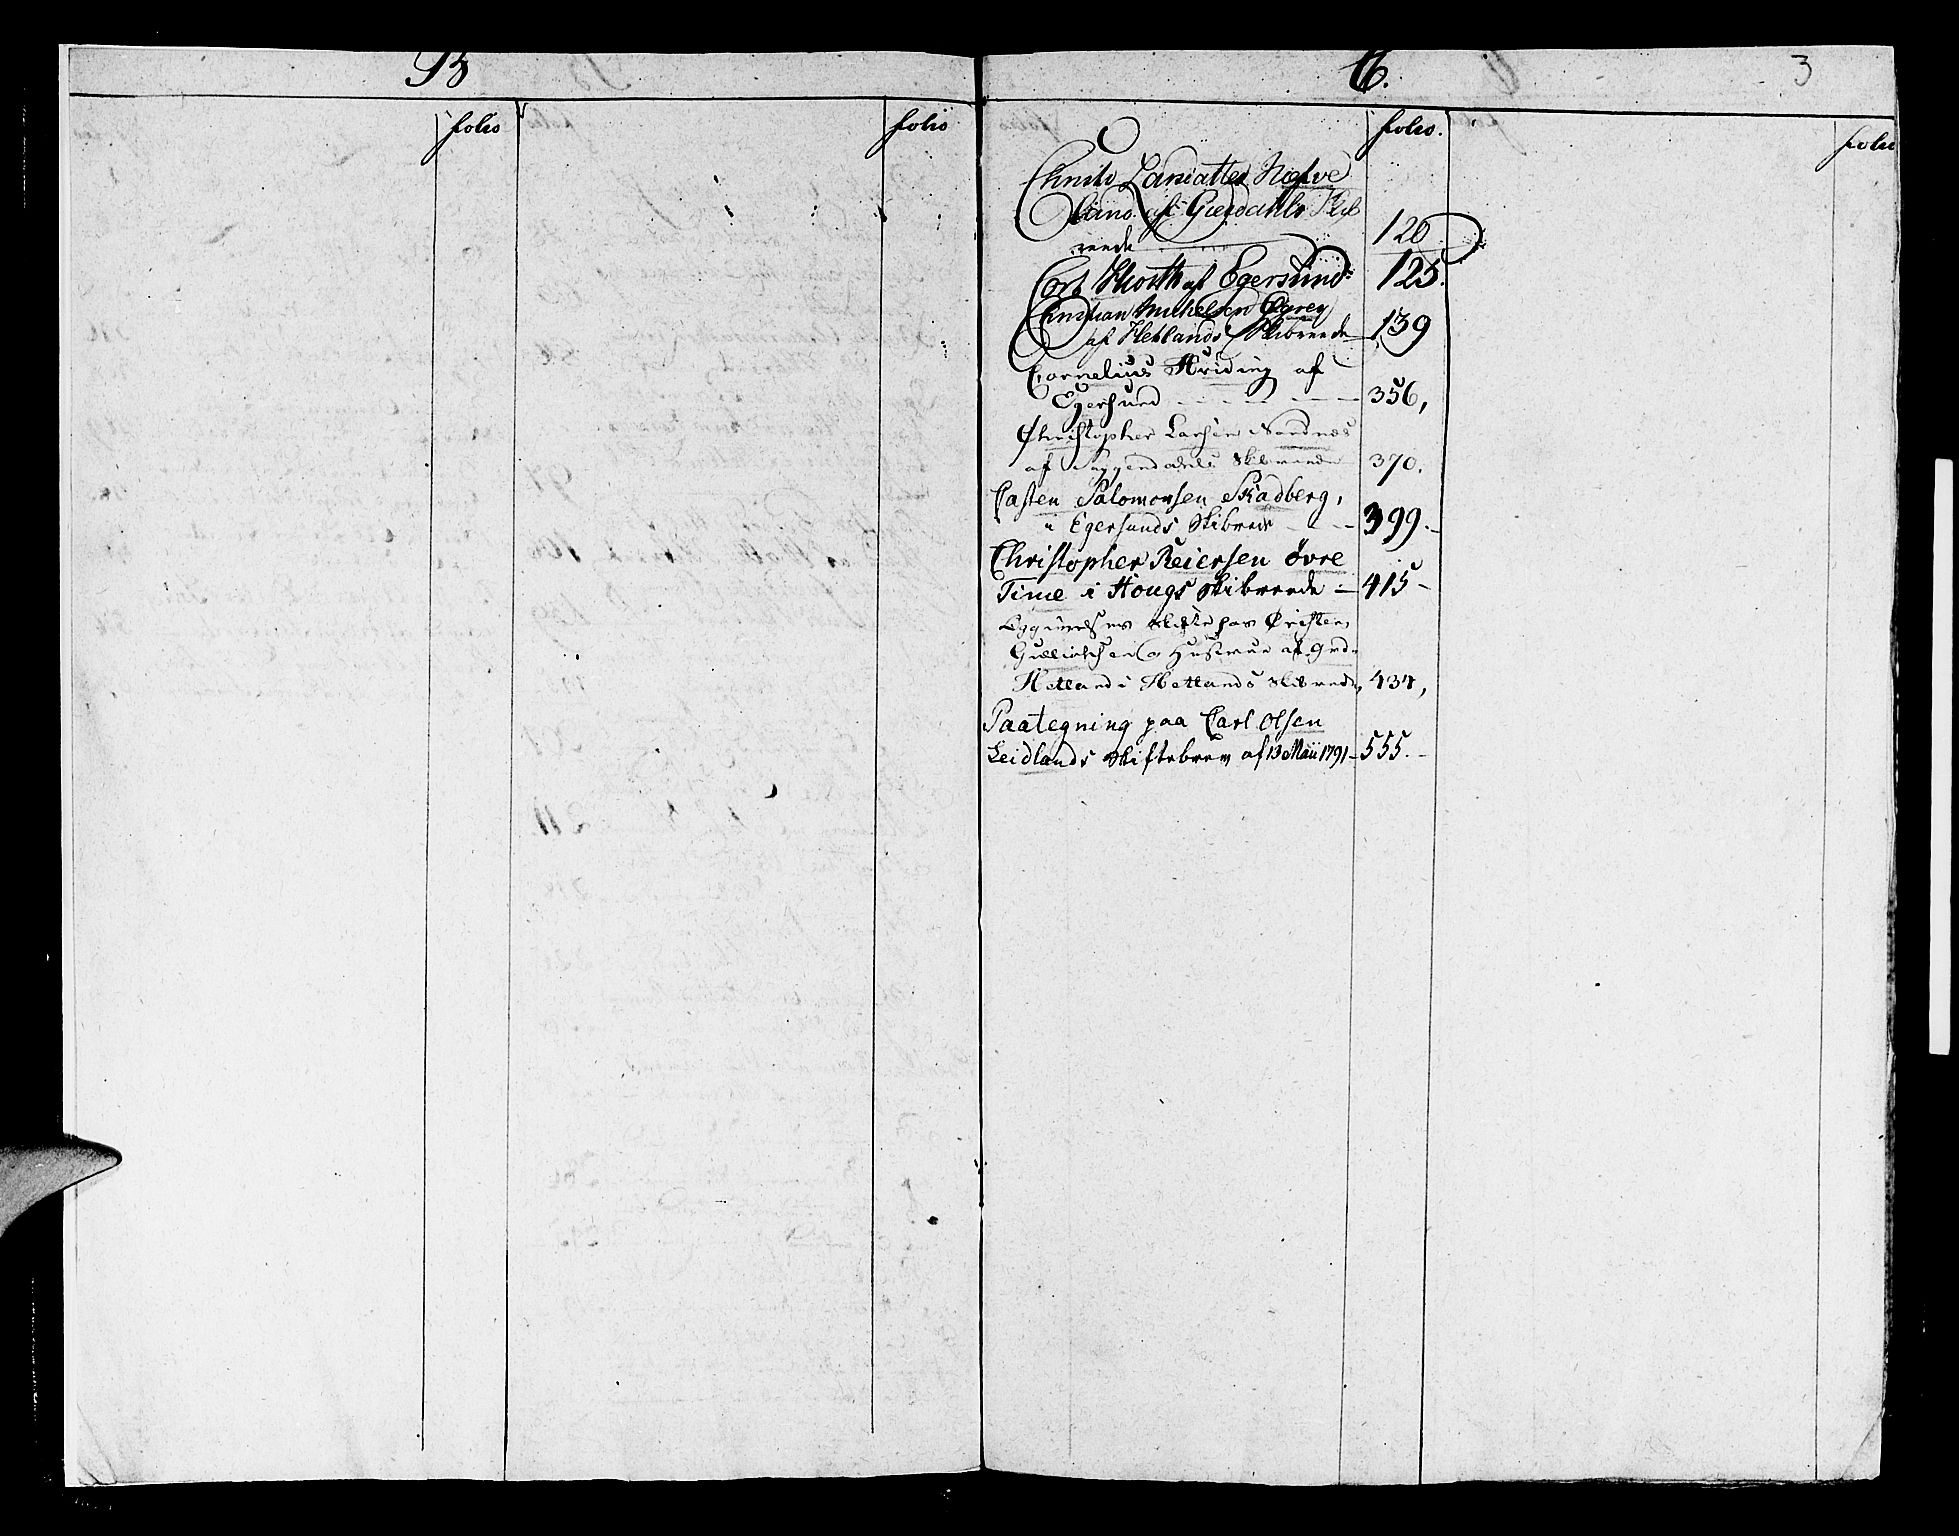 B
folio
folio
C.
3
folio.
folio
Christi Larsdatter Hæfve
land af Giesdahls Skib
rede 120
Cort Kioth af Egersund 125.
Christian Michelsen Ogrey
af Hetlands Skibreede 139
Cornelius Friding af
Egersund 356,
Christopher Larsen Sandnes
af Soggendahls Skibreede 370.
Casten Salomonsen Skadberg,
i Egersunds Skibrede 399.
Christopher Reiersen øvre
Time i Hougs Skibreede 415
skifte hos Christen
Gulliches og Hustrue af Grd.
Hetland i Hetlands Skibrede, 434,
Paategning paa Carl Olsen
Leidlands Skiftebrev af 13 Maii 1791 555.